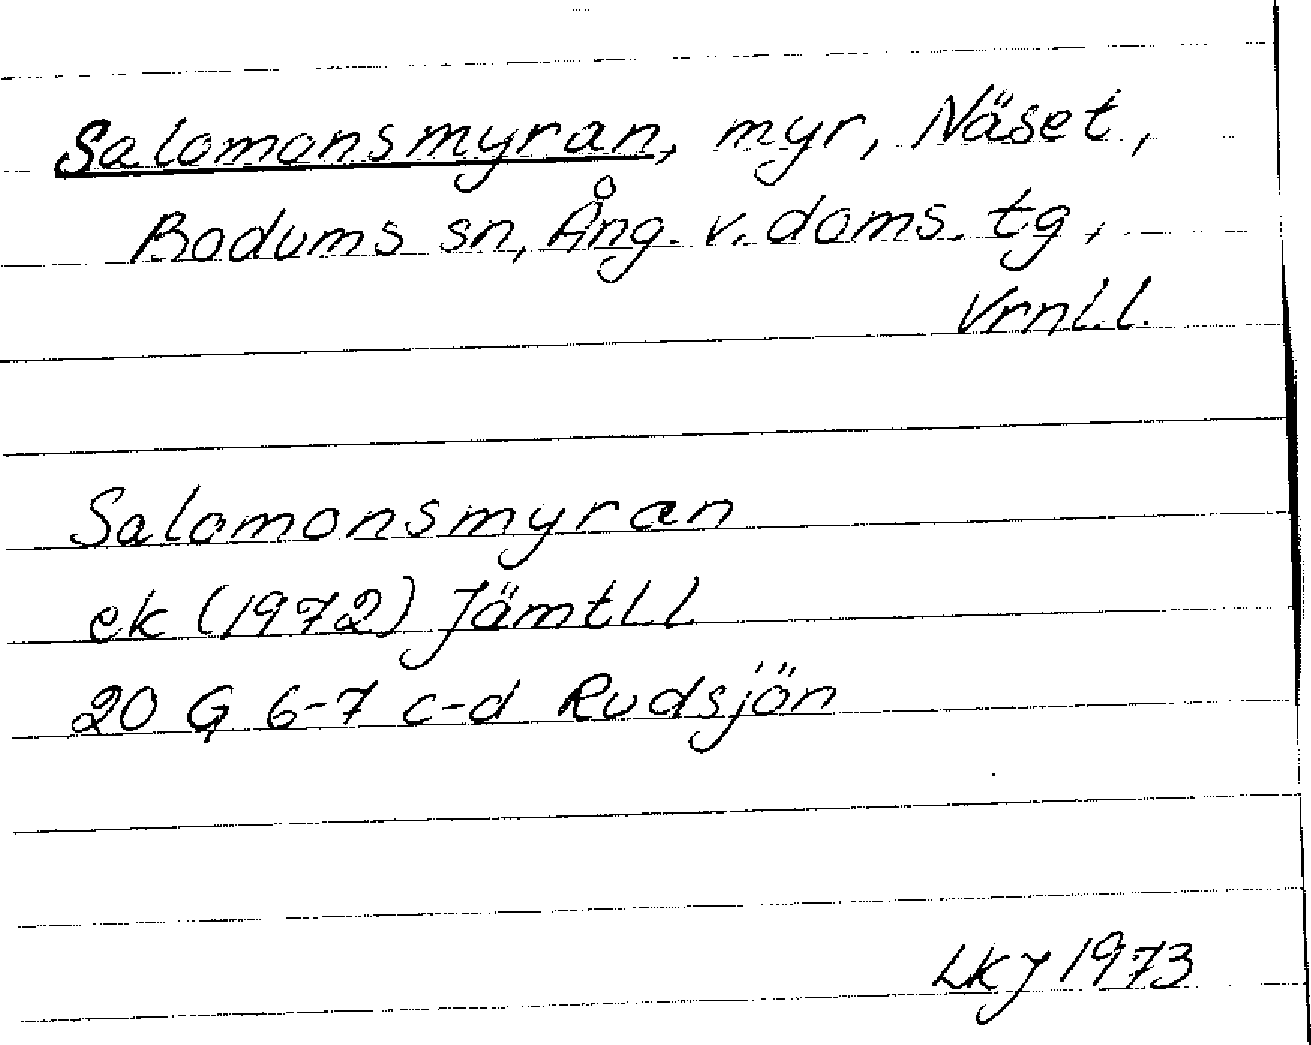 Salomonsmyran, myr, Näset,
Bodums sn, Ång. v. doms. tg,
Vrnl.l.
Salomonsmyran
ek (1972) Jämtl.l
20 G 6-7 c-d Rudsjön
LKJ 1973